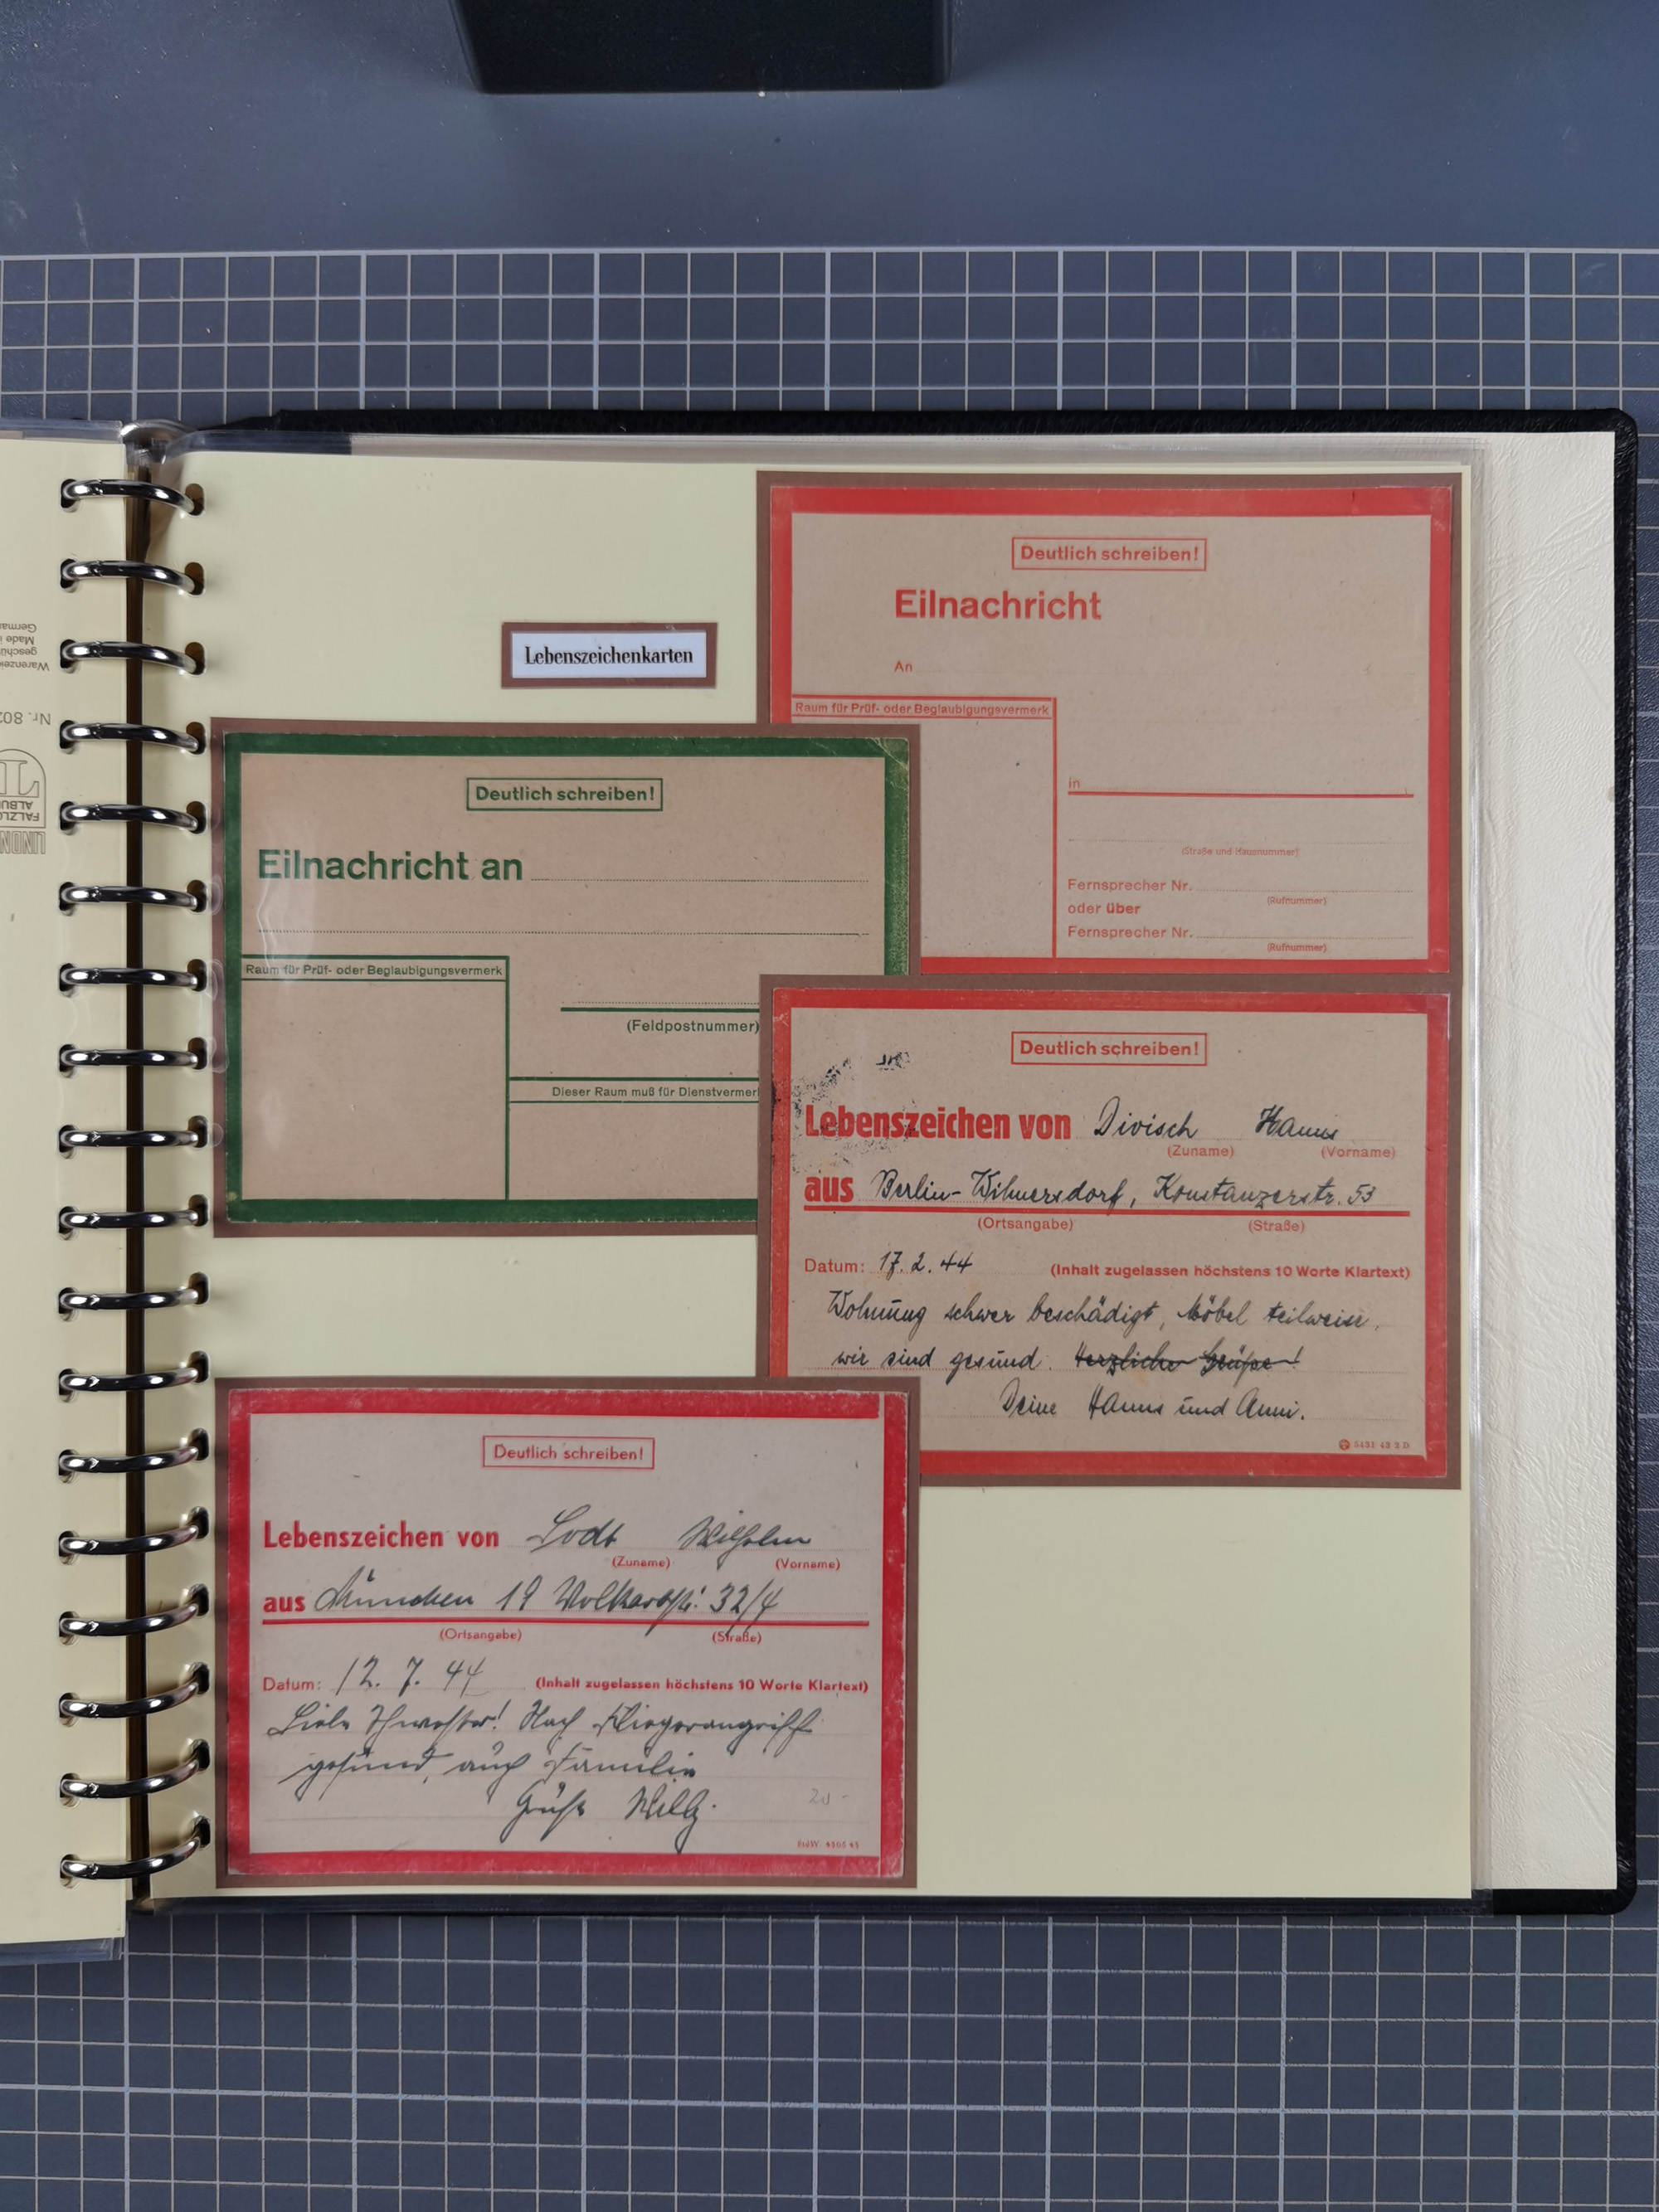 Lebenszeichenkarten
Deutlich schreiben!
Eilnachricht
An
Raum für Prüf- oder Beglaubigungsvermerk
in
(Straße und Hausnummer)
Fernsprecher Nr.
(Rufnummer)
oder über
Fernsprecher Nr.
(Rufnummer)
Deutlich schreiben!
Eilnachricht an
Raum für Prüf- oder Beglaubigungsvermerk
(Feldpostnummer)
Dieser Raum muß für Dienstvermer
Deutlich schreiben!
Lebenszeichen von Divisch Hanns
(Zuname) (Vorname)
aus Berlin-Wilmersdorf, Konstanzerstr. 53
(Ortsangabe) (Straße)
Datum: 17. 2. 44 (Inhalt zugelassen höchstens 10 Worte Klartext)
Wohnung schwer beschädigt, Möbel teilweise,
wir sind gesund. Herzliche Grüße!
Deine Hanns und Anni.
5431 43 2 D
Deutlich schreiben!
Lebenszeichen von Wilhelm
(Zuname) (Vorname)
aus München 19 32/4
(Ortsangabe) (Straße)
Datum: 12. 7. 44 (Inhalt zugelassen höchstens 10 Worte Klartext)
Liebe Schwester! Nach Fliegerangriff
gesund, auch Familie
Grüße Willy.
Warenzei
geschüt
Made i
German
Nr. 802
FALZLO
ALBU
LINDN